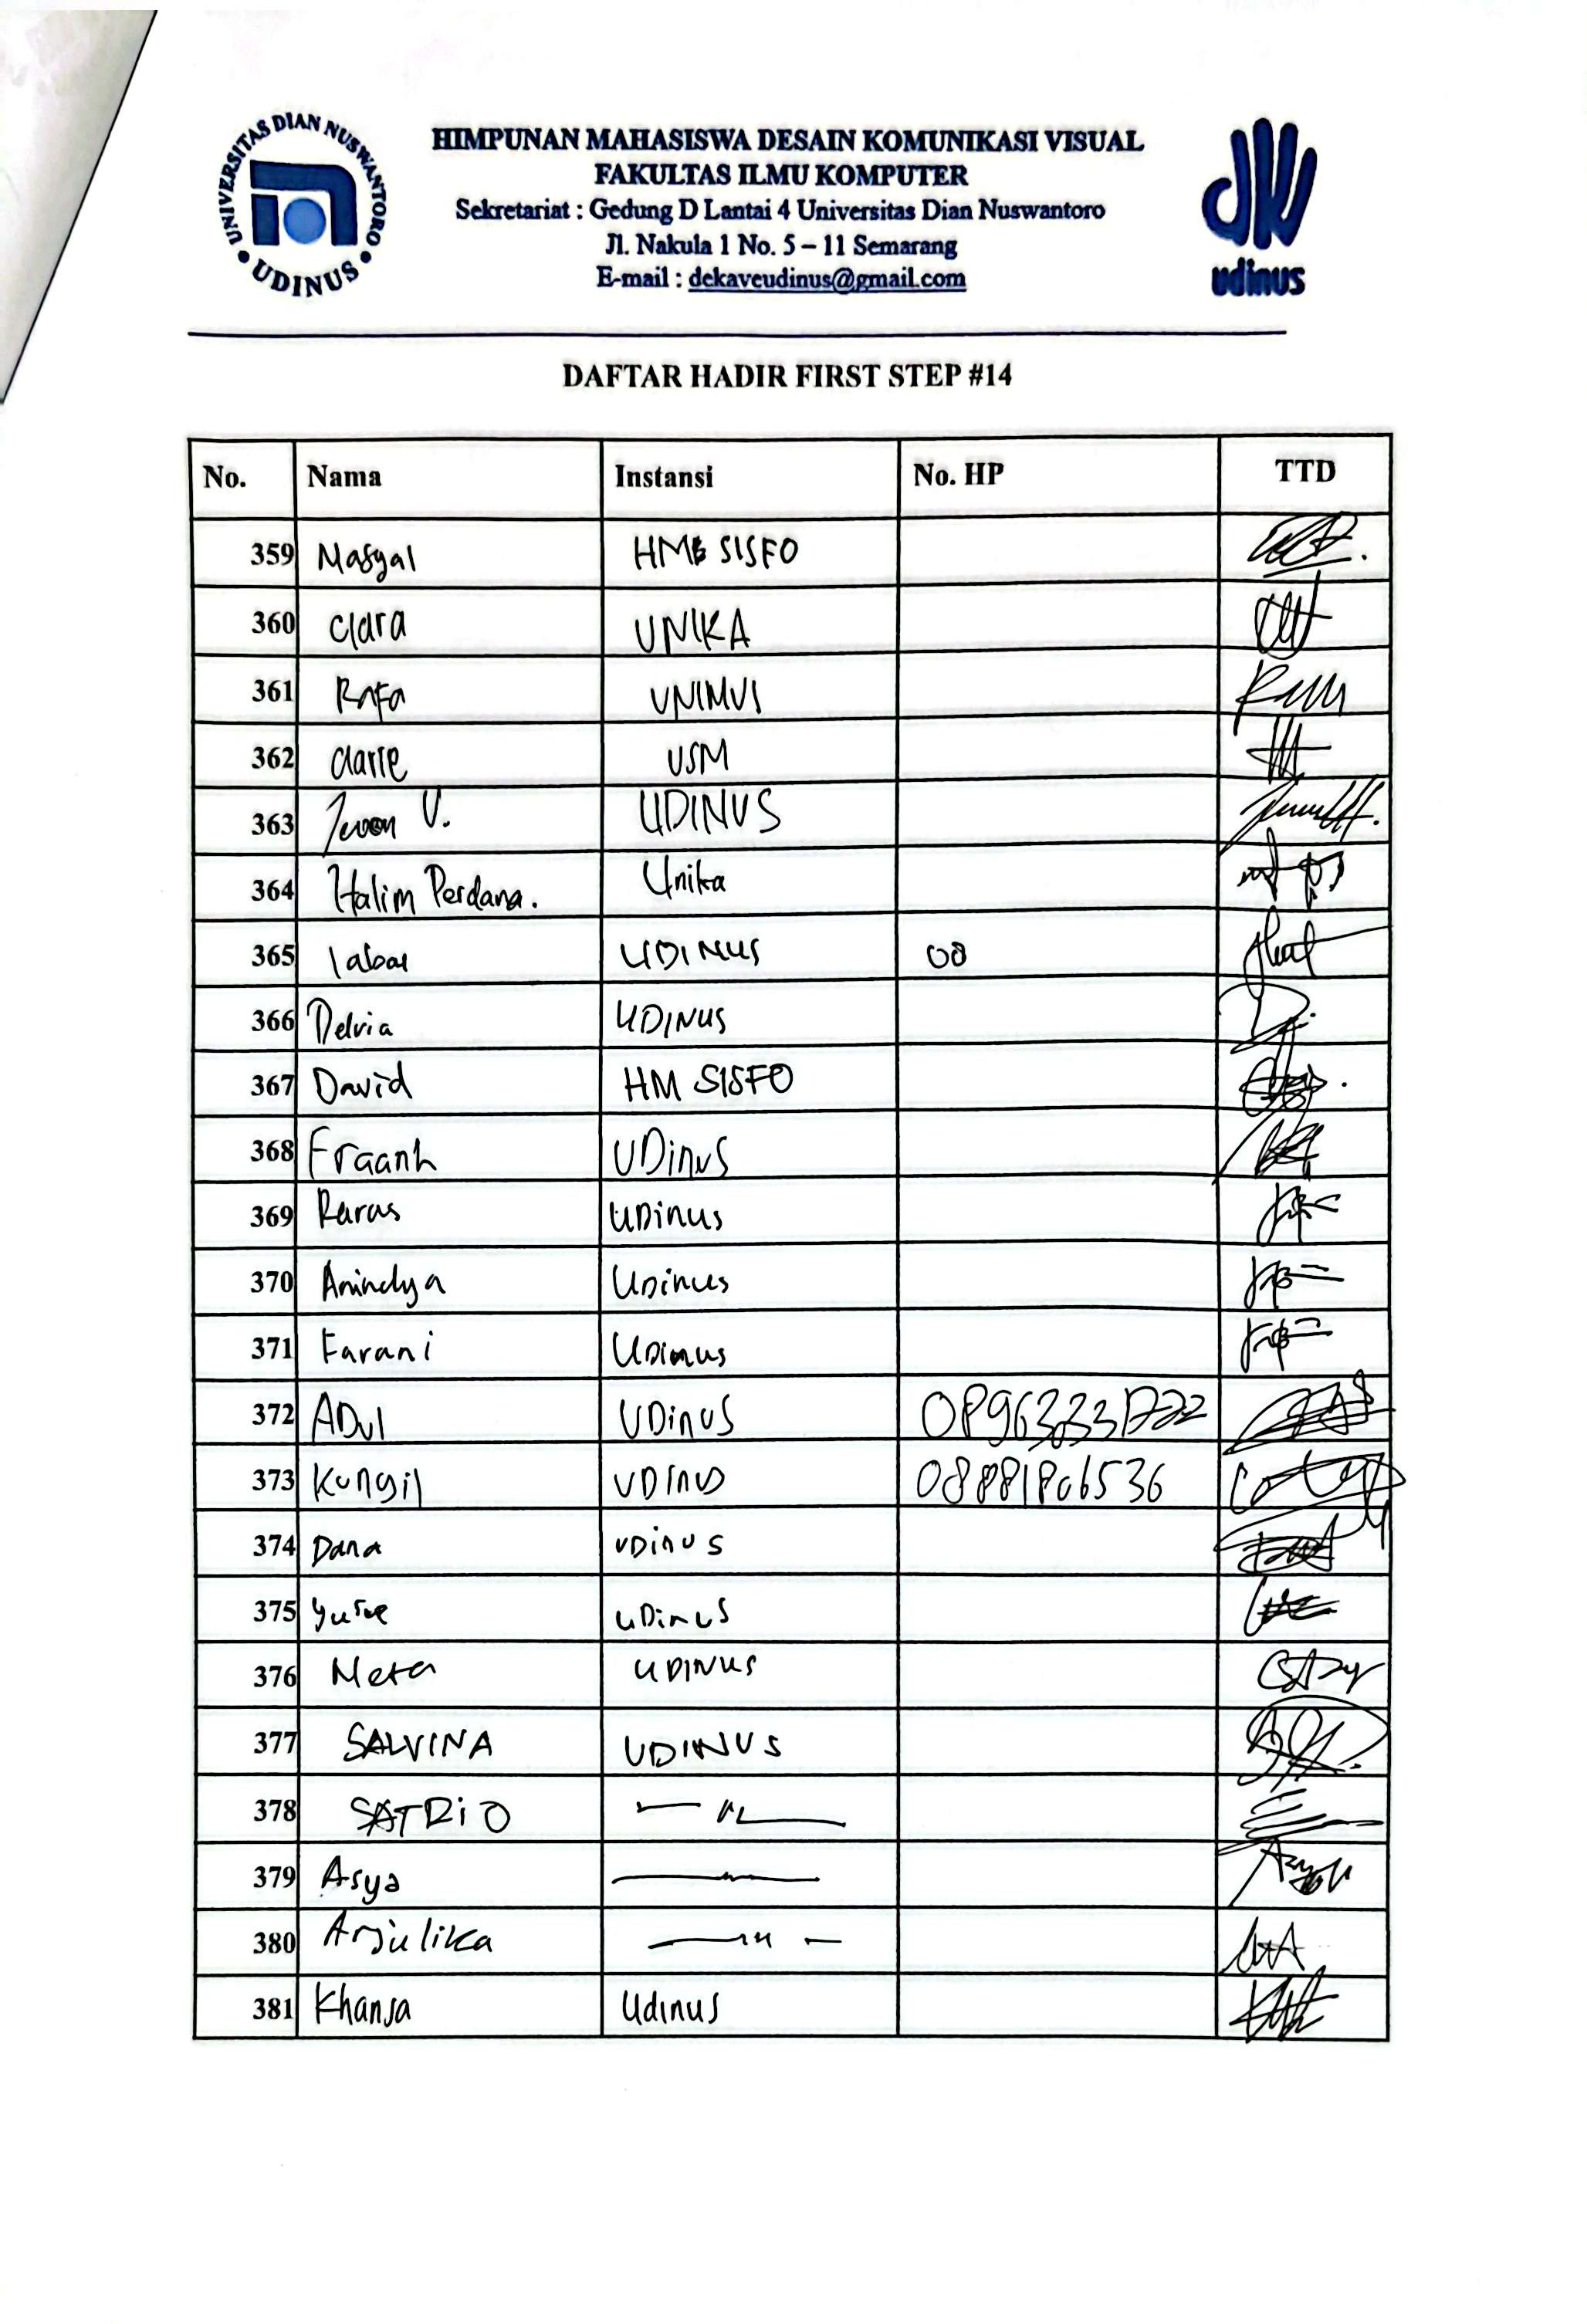 UNIVERSITAS DIAN NUSWANTORO
• UDINUS •
HIMPUNAN MAHASISWA DESAIN KOMUNIKASI VISUAL
FAKULTAS ILMU KOMPUTER
Sekretariat : Gedung D Lantai 4 Universitas Dian Nuswantoro
Jl. Nakula 1 No. 5 – 11 Semarang
E-mail : dekaveudinus@gmail.com
dkv
udinus
DAFTAR HADIR FIRST STEP #14
No. Nama Instansi No. HP TTD
359 Masyal SISFO
360 Clara UNIKA
361 Rafa UNIMUS
362 USM
363 V. UDINUS
364 Halim Perdana. Unika
365 UDINUS 08
366 Delvia UDINUS
367 David HM SISFO
368 Fraanh UDinuS
369 Raras UDinus
370 Anindya UDinus
371 Farani UDinus
372 ADul UDinuS
373 Kungil UDINUS 08881806536
374 Dana uDinus
375 uDinuS
376 UDINUS
377 SALVINA UDINUS
378 SATRiO — " —
379 Asya — " —
380 Anjulika — " —
381 Khansa Udinus